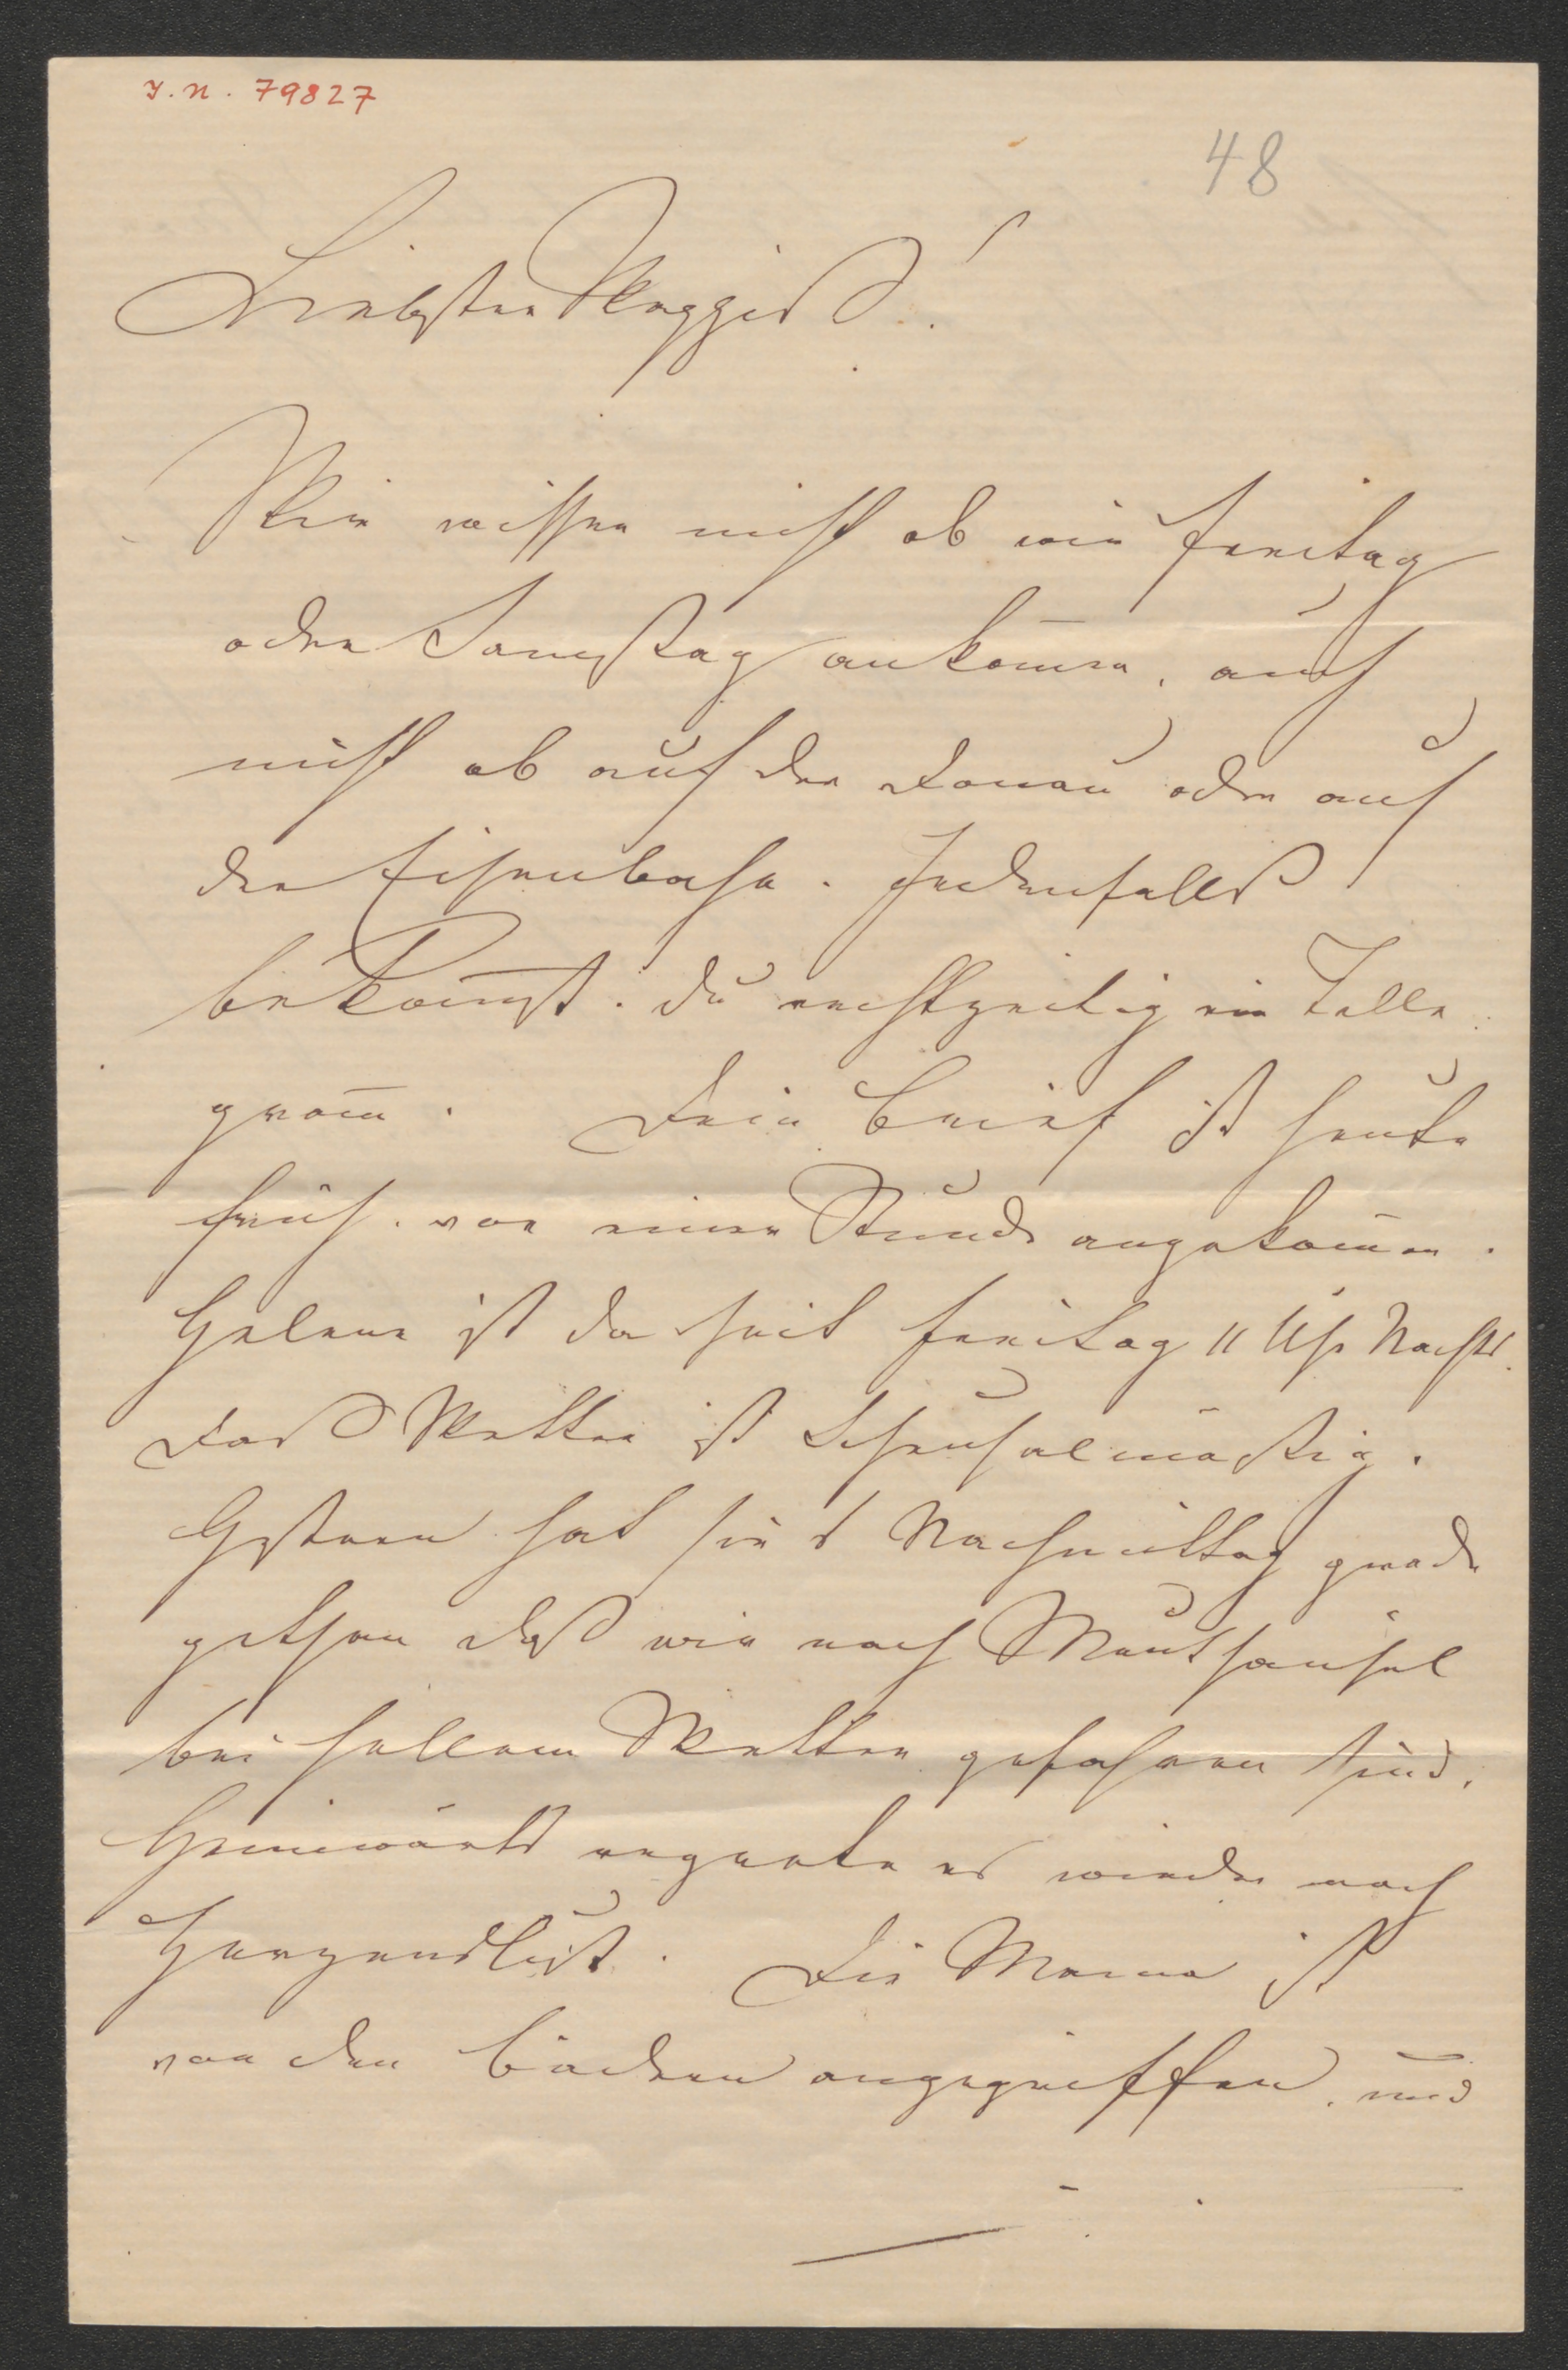 I. N. 79827
48
Liebster !
Wir wissen nicht ob wir Freitag
oder Samstag ankom̄en, auch
nicht ob auf der Donau oder auf
der Eisenbahn. Jedenfalls
bekom̄st Du rechtzeitig ein Telle
gram̄. Dein Brief ist heute
früh vor einer Stunde angekom̄en.
Helene ist da seit Freitag 11 Uhr Nachts.
Das Wetter ist scheusalmäßig.
Gestern hat sie's Nachmittag grade
gethan daß wir nach Mauthausen
bei hellem Wetter gefahren sind.
Heimwärts regnete es wieder nach
Herzenslust. Die Mama ist
von den Bädern angegriffen, und